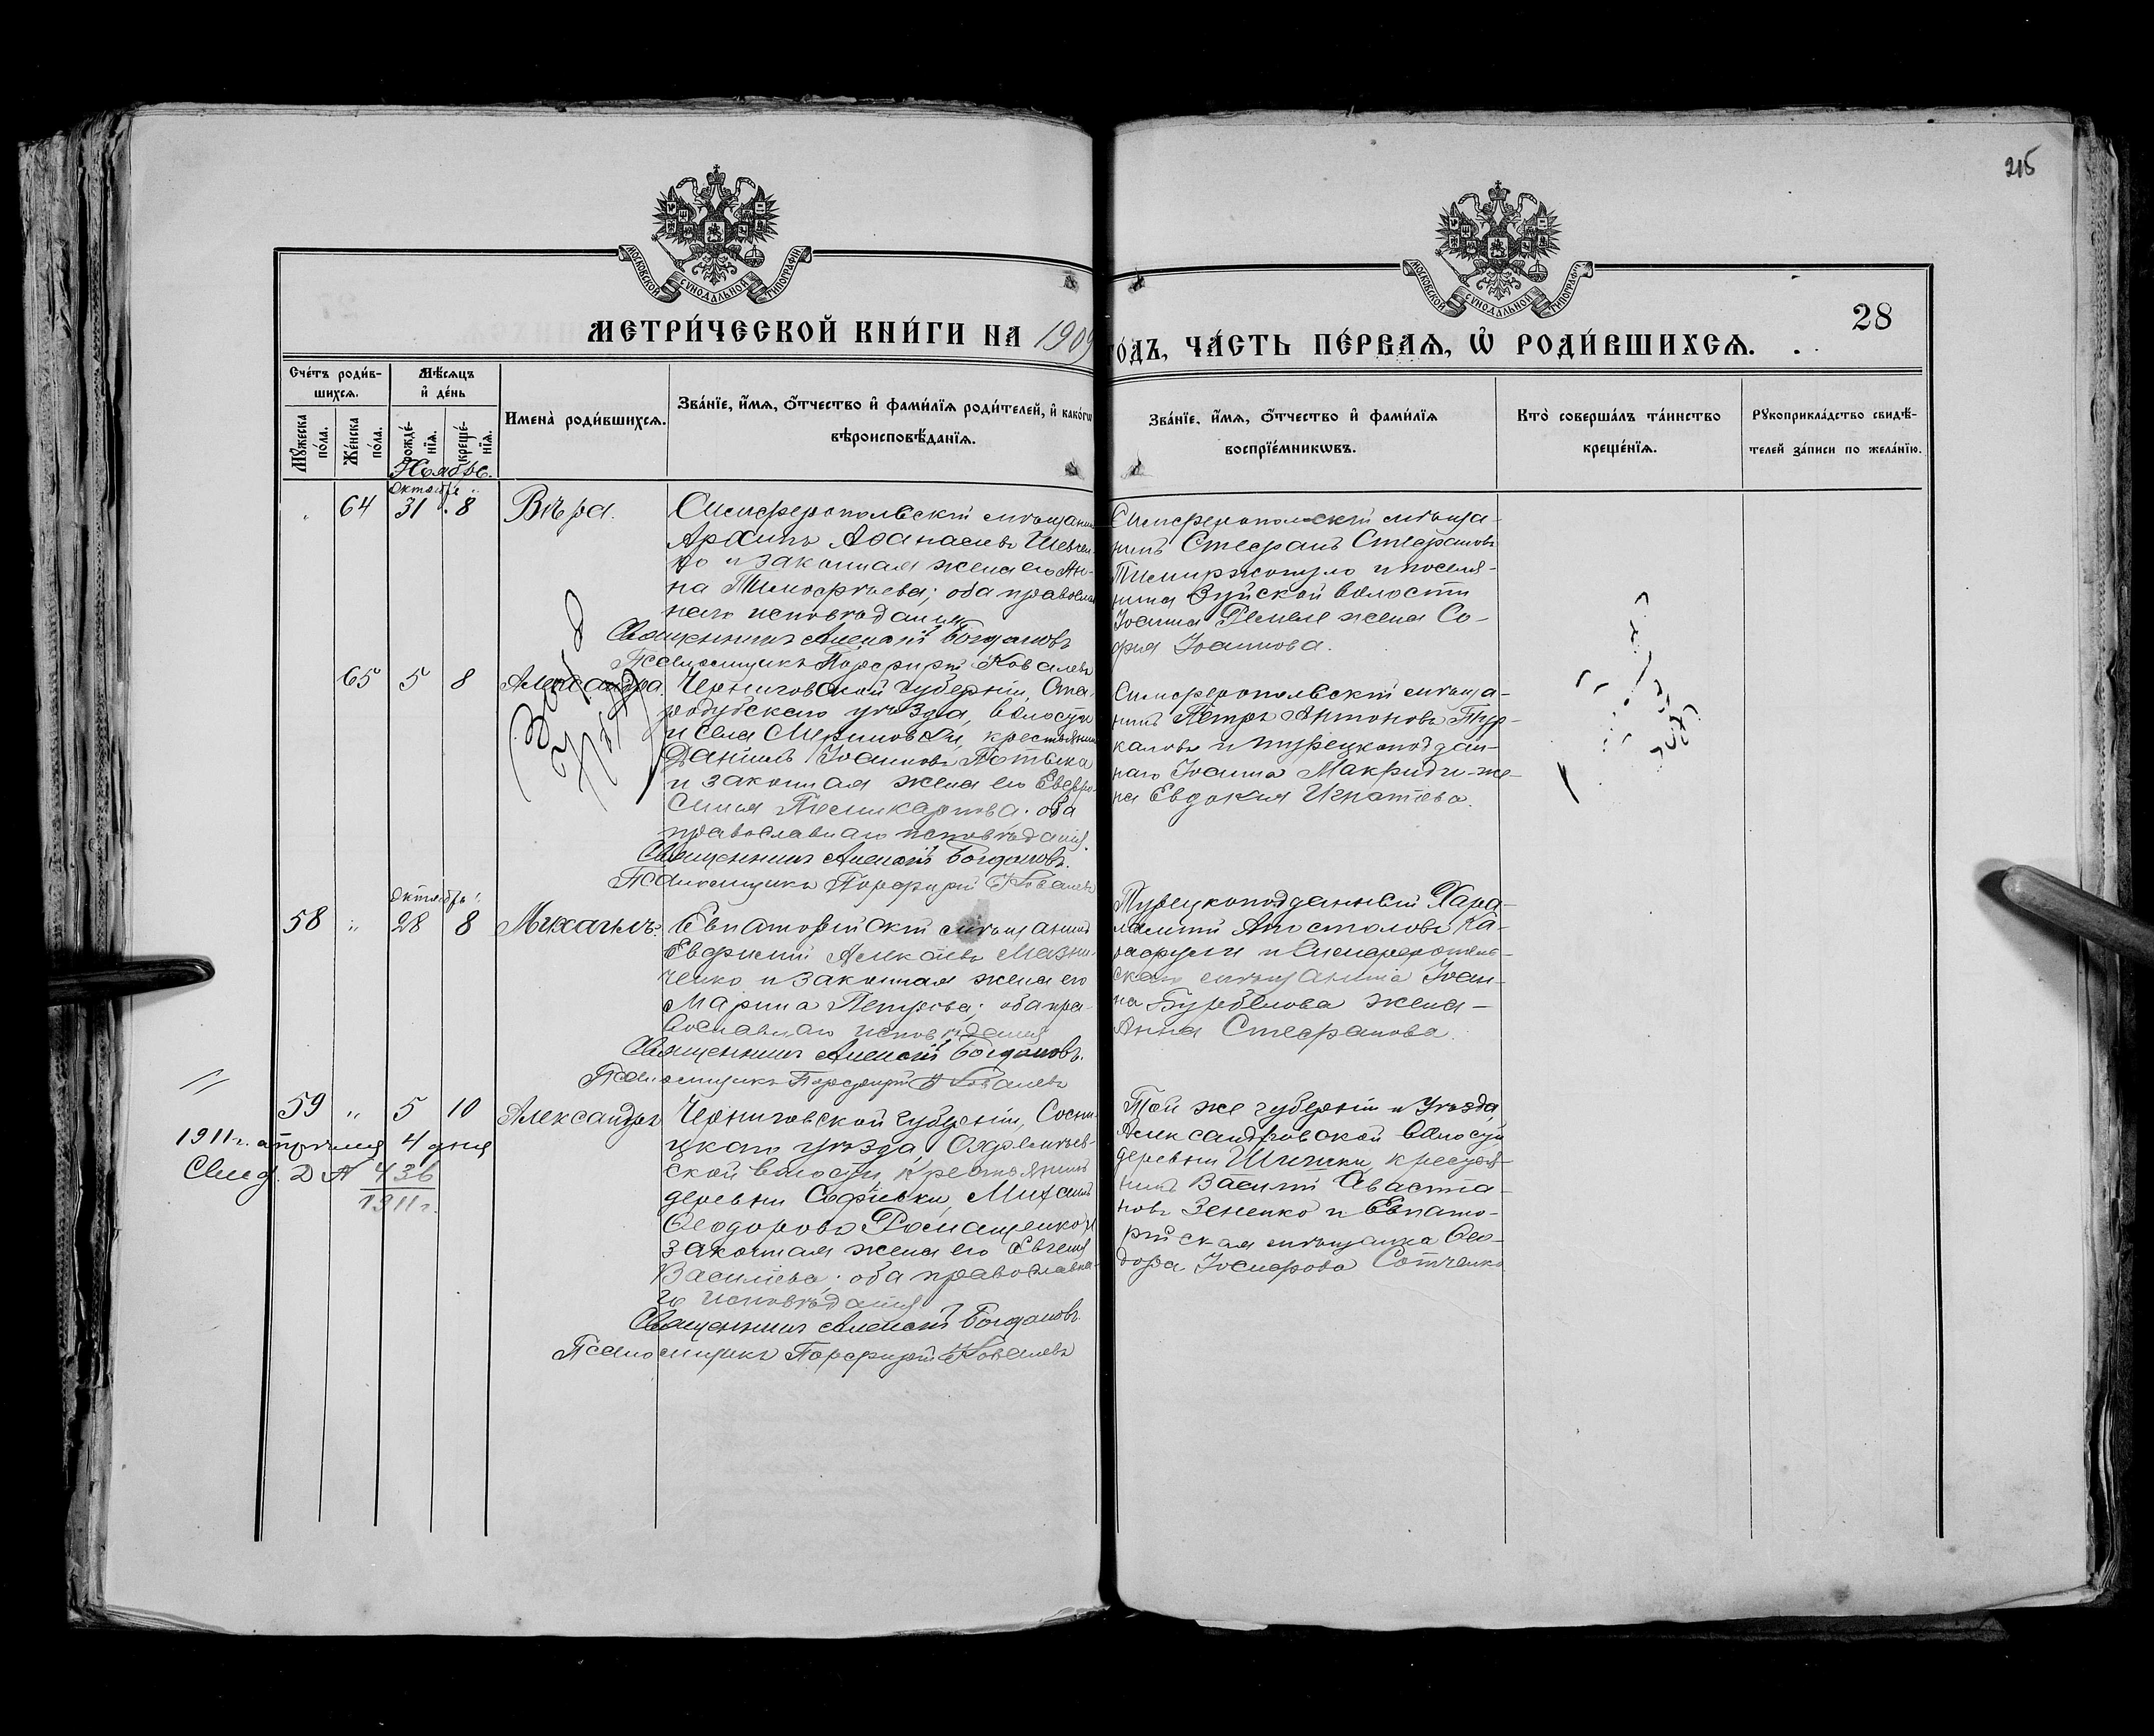 215
МОСКОВСКОЙ СУНОДАЛЬНОЙ ТИПОГРАФІИ
МОСКОВСКОЙ СУНОДАЛЬНОЙ ТИПОГРАФІИ
28
МЕТРИ́ЧЕСКОЙ КНИ́ГИ НА 1909
ГО́ДЪ, ЧА́СТЬ ПЕ́РВАѦ, Ѡ҆ РОДИ́ВШИХСѦ.
Сче́тъ роди́вшихсѧ.
Мꙋ́жеска по́ла.
Же́нска по́ла.
Мѣ́сѧцъ и҆ де́нь
рожде́нїѧ.
креще́нїѧ.
Имена̀ роди́вшихсѧ.
Зва́нїе, и҆́мѧ, ѻ҆́тчество и҆ фами́лїѧ роди́телей, и҆ како́гѡ
вѣроисповѣ́данїѧ.
Зва́нїе, и҆́мѧ, ѻ҆́тчество и҆ фами́лїѧ
воспрїе́мникѡвъ.
Кто̀ соверша́лъ та́инство
креще́нїѧ.
Рꙋкоприкла́дство свидѣ́-
телей за́писи по жела́нїю.
Ноябрь.
Октябрь
64 31 8 Вѣра.
Симферопольскій мѣщанинъ
Архипъ Аѳанасіевъ Шевчен-
ко и законная жена его Ан-
на Тимоѳеева; оба православ
наго исповѣданія
Священникъ Алексій Богдановъ
Псаломщикъ Порфирій Ковалевъ
Симферопольскій мѣща-
нинъ Стефанъ Стефановъ
и поселя-
нина Зуйской волости
Іоанна жена Со-
фія Іоаннова.
65 5 8 Александра.
Черниговской губерніи, Ста-
родубскаго уѣзда, волости
и села крестьянинъ
Даніилъ Іоанновъ
и законная жена его Евфро-
синія Поликарпова; оба
православнаго исповѣданія.
Священникъ Алексій Богдановъ.
Псаломщикъ Порфирій Ковалевъ
Симферопольскій мѣща-
нинъ Петръ Антоновъ
и турецкоподдан-
наго Іоанна Макриди же-
на Евдокія Игнатіева.
Октябрь
58 „ 28 8 Михаилъ.
Евпаторійскій мѣщанинъ
Евфимій Алексіевъ
ченко и законная жена его
Марина Петрова; оба пра-
вославнаго исповѣданія
Священникъ Алексій Богдановъ.
Псаломщикъ Порфирій Ковалевъ
Турецкоподданный Хара-
лампій Апостоловъ
и Симферополь-
скаго мѣщанина Іоан-
на жена
Анна Стефанова.
59 „ 5 10 Александръ
Черниговской губерніи, Сосни-
цкаго уѣзда,
ской волости, крестьянинъ
деревни Софіевки, Михаилъ
Ѳеодоровъ Ромащенко и
законная жена его Евгенія
Василіева; оба православна-
го исповѣданія
Священникъ Алексій Богдановъ.
Псаломщикъ Порфирій Ковалевъ
Той же губерніи и уѣзда,
Александровской волости
деревни крестья-
нинъ Василій Савастіа-
новъ Зененко и Евпато-
рійская мѣщанка Ѳео-
дора Іосифова Сотченко
1911 г. апрѣля 4 дня
Свид. 436
1911 г.